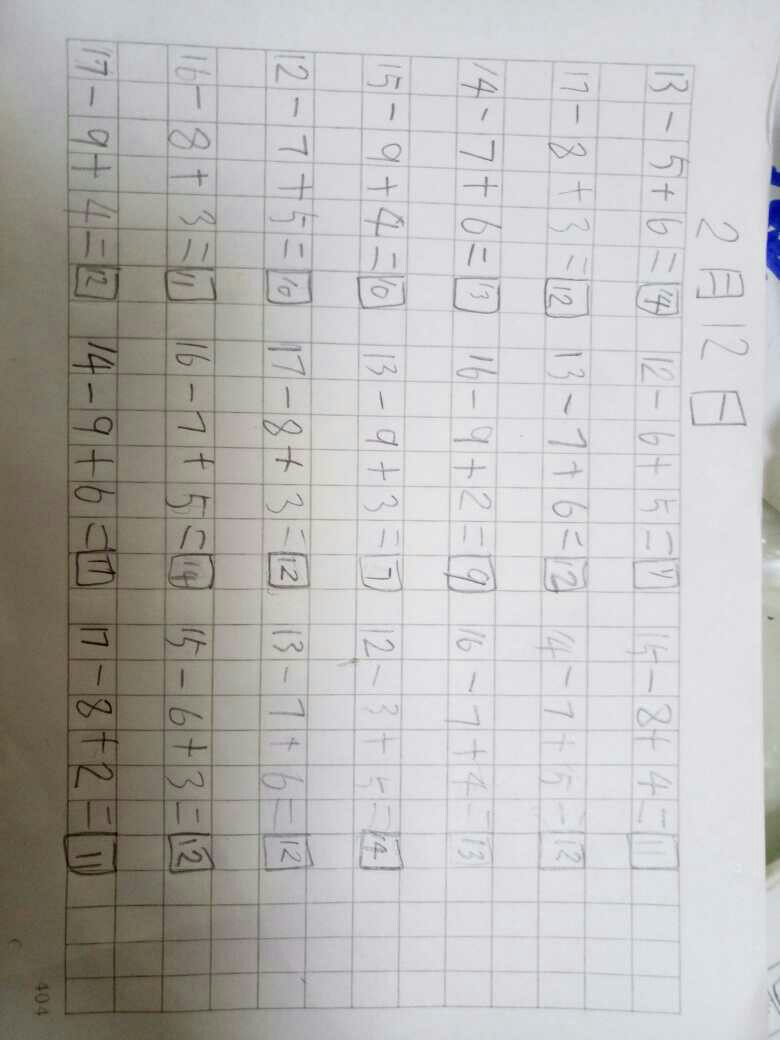 2月12日
13-5+6=14 12-6+5=11 15-8+4=11
17-8+3=12 13-7+6=12 14-7+5=12
14-7+6=13 16-9+2=9 16-7+4=13
15-9+4=10 13-9+3=7 12-3+5=14
12-7+5=10 17-8+3=12 13-7+6=12
16-8+3=11 16-7+5=14 15-6+3=12
17-9+4=12 14-9+6=11 17-8+2=11
404